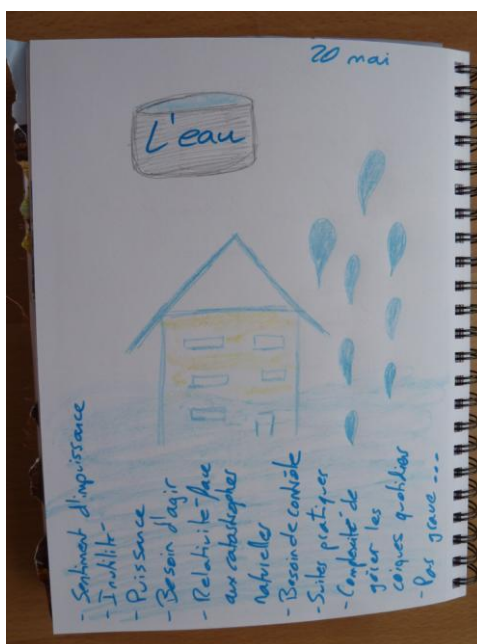 20 mai
L'eau
- Sentiment d'impuissance
- Inutilité
- Puissance
- Besoin d'agir
- Relativité face
aux catastrophes
naturelles
- Besoin de contrôle
- Suites pratiques
- Complexité de
gérer les
quotidien
- Pas grave ...